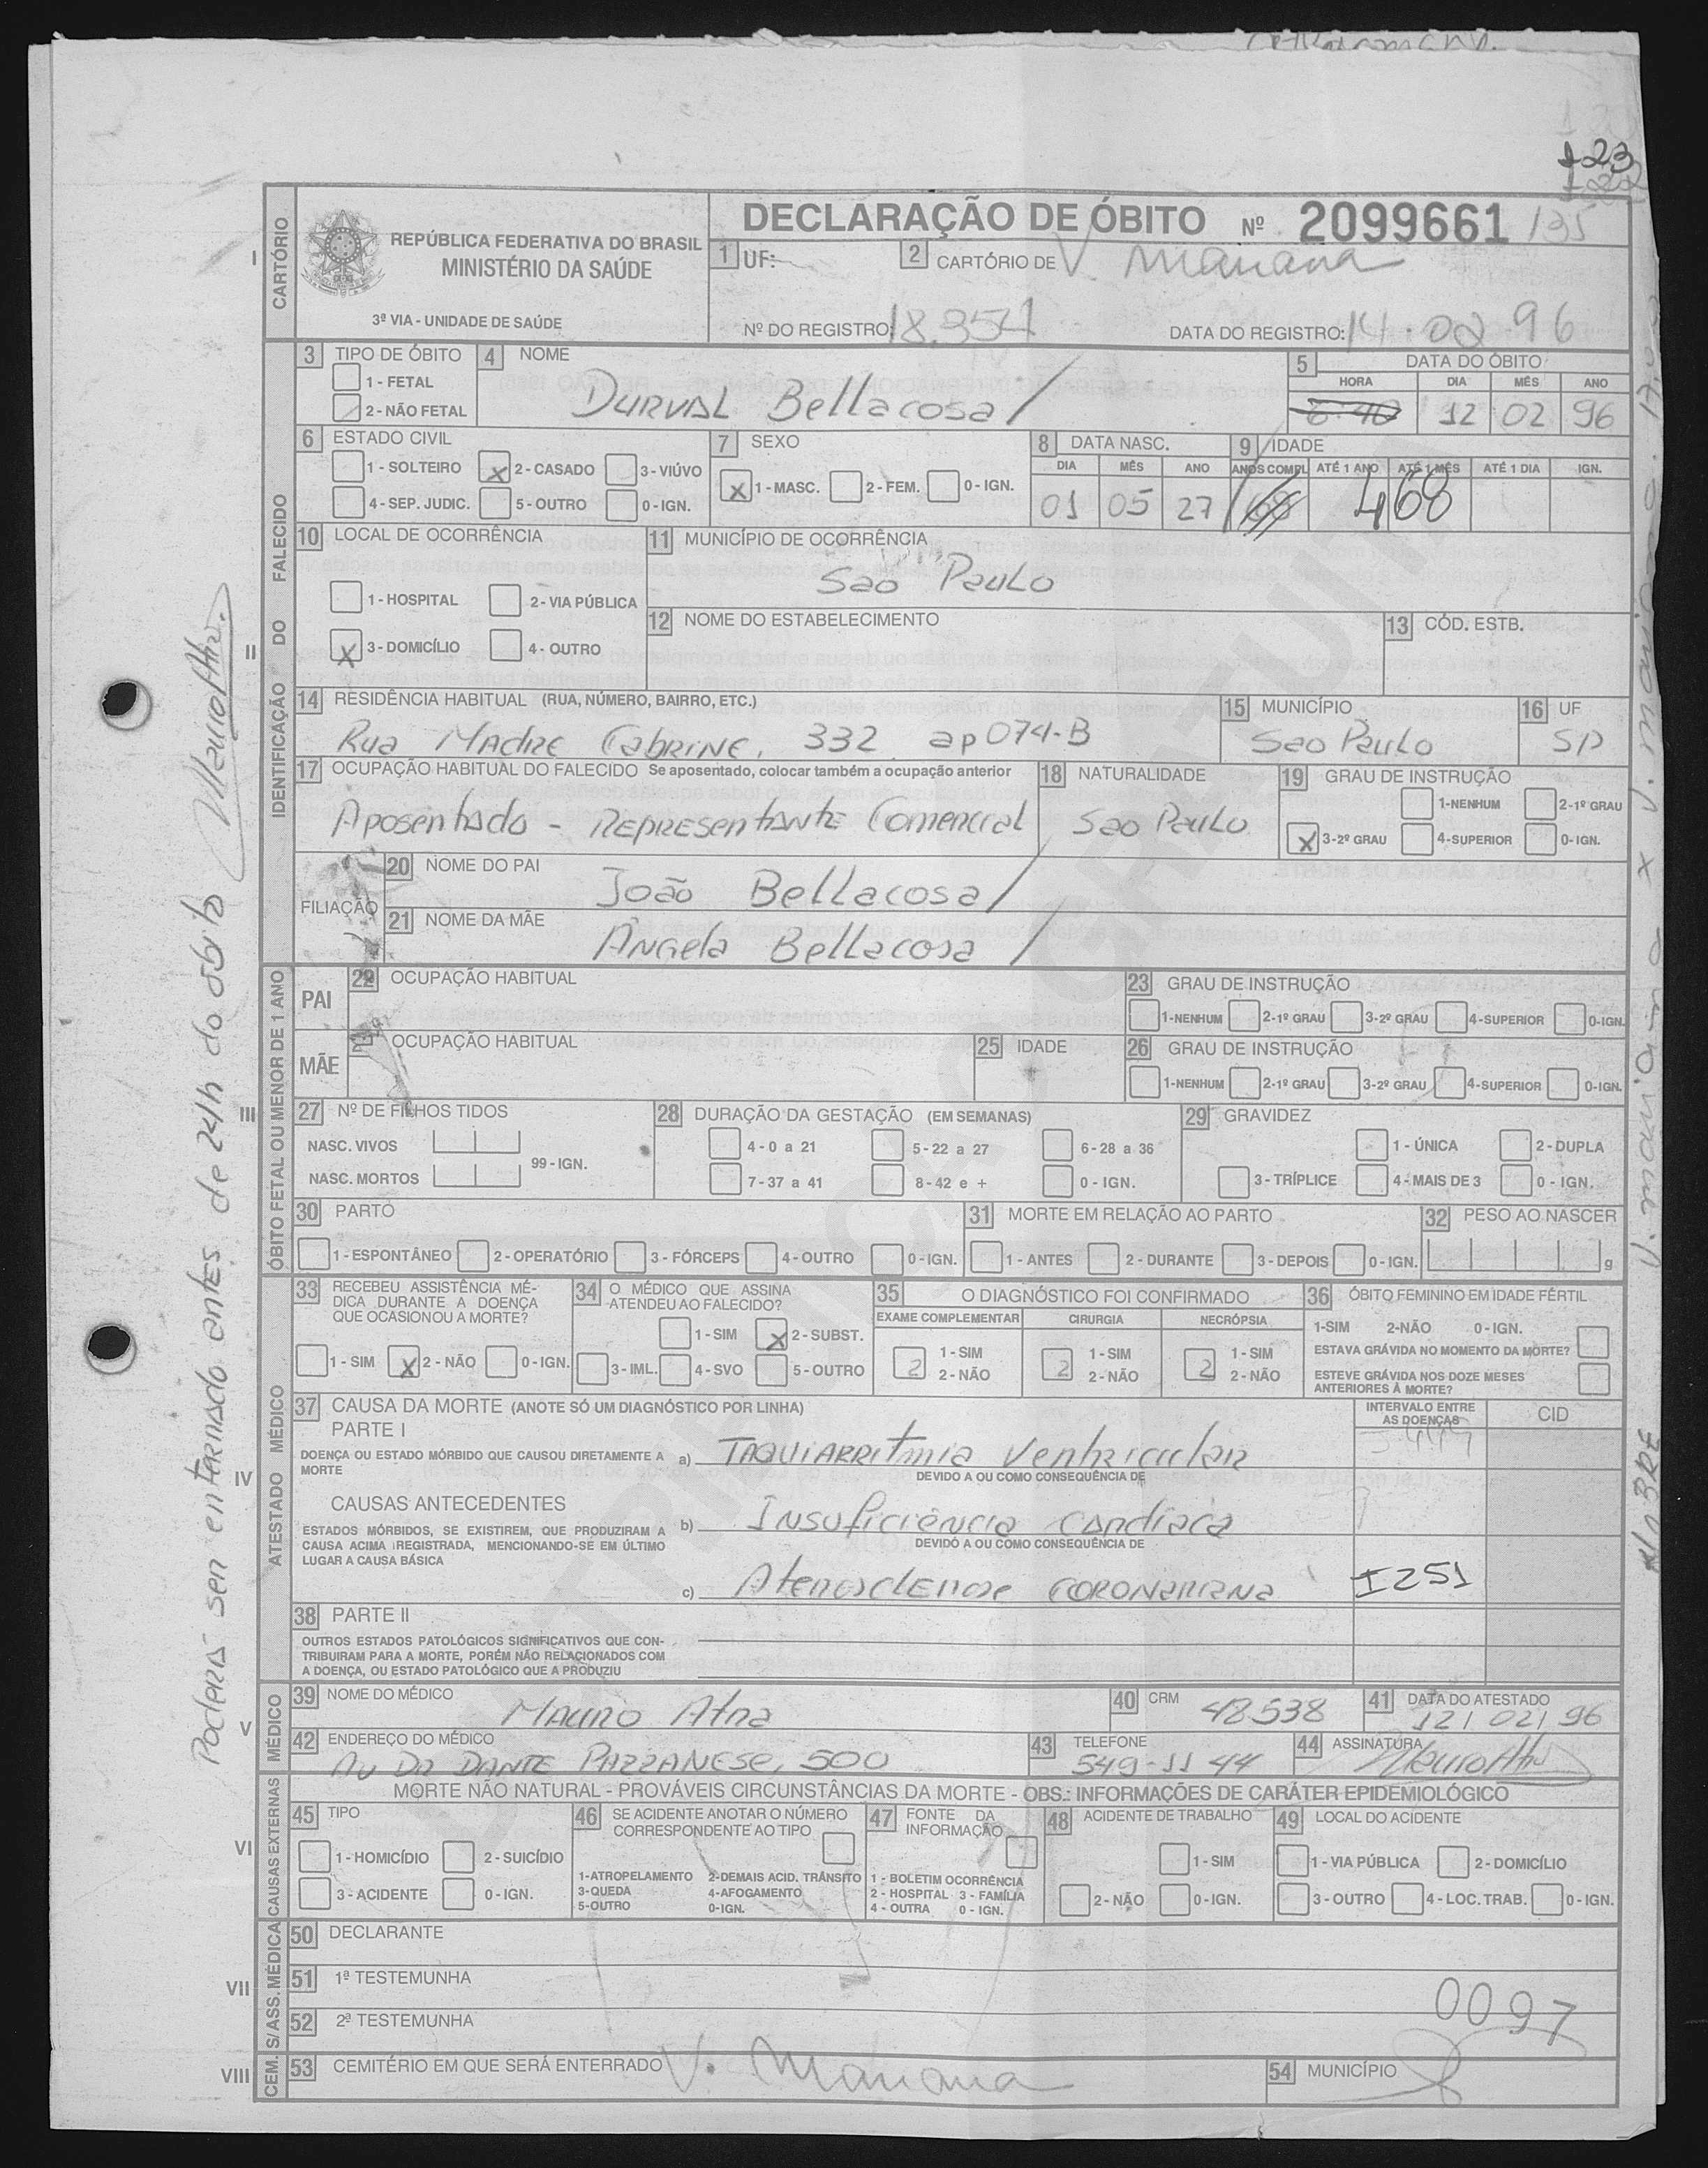 123
CARTÓRIO
I
REPÚBLICA FEDERATIVA DO BRASIL
MINISTÉRIO DA SAÚDE
3ª VIA - UNIDADE DE SAÚDE
DECLARAÇÃO DE ÓBITO Nº 2099661 /135
1 UF:
2 CARTÓRIO DE V. Mariana
Nº DO REGISTRO: 18.954
DATA DO REGISTRO: 14.02.96
IDENTIFICAÇÃO DO FALECIDO
II
3 TIPO DE ÓBITO
1 - FETAL
2 - NÃO FETAL
4 NOME
Durval Bellacosa /
5 DATA DO ÓBITO
HORA DIA MÊS ANO
6:40 12 02 96
6 ESTADO CIVIL
1 - SOLTEIRO X 2 - CASADO 3 - VIÚVO
4 - SEP. JUDIC. 5 - OUTRO 0 - IGN.
7 SEXO
X 1 - MASC. 2 - FEM. 0 - IGN.
8 DATA NASC.
DIA MÊS ANO
01 05 27
9 IDADE
ANOS COMPL ATÉ 1 ANO ATÉ 1 MÊS ATÉ 1 DIA IGN.
68 468
10 LOCAL DE OCORRÊNCIA
1 - HOSPITAL 2 - VIA PÚBLICA
X 3 - DOMICÍLIO 4 - OUTRO
11 MUNICÍPIO DE OCORRÊNCIA
Sao Paulo
12 NOME DO ESTABELECIMENTO
13 CÓD. ESTB.
14 RESIDÊNCIA HABITUAL (RUA, NÚMERO, BAIRRO, ETC.)
Rua Madre Cabrine, 332 ap 074-B
15 MUNICÍPIO
Sao Paulo
16 UF
SP
17 OCUPAÇÃO HABITUAL DO FALECIDO Se aposentado, colocar também a ocupação anterior
Aposentado - Representante Comercial
18 NATURALIDADE
Sao Paulo
19 GRAU DE INSTRUÇÃO
1-NENHUM 2-1º GRAU
X 3-2º GRAU 4-SUPERIOR 0-IGN.
FILIAÇÃO
20 NOME DO PAI
João Bellacosa /
21 NOME DA MÃE
Angela Bellacosa /
ÓBITO FETAL OU MENOR DE 1 ANO
III
PAI
22 OCUPAÇÃO HABITUAL
23 GRAU DE INSTRUÇÃO
1-NENHUM 2-1º GRAU 3-2º GRAU 4-SUPERIOR 0-IGN.
MÃE
OCUPAÇÃO HABITUAL
25 IDADE
26 GRAU DE INSTRUÇÃO
1-NENHUM 2-1º GRAU 3-2º GRAU 4-SUPERIOR 0-IGN.
27 Nº DE FILHOS TIDOS
NASC. VIVOS
NASC. MORTOS
99 - IGN.
28 DURAÇÃO DA GESTAÇÃO (EM SEMANAS)
4 - 0 a 21 5 - 22 a 27 6 - 28 a 36
7 - 37 a 41 8 - 42 e + 0 - IGN.
29 GRAVIDEZ
1 - ÚNICA 2 - DUPLA
3 - TRÍPLICE 4 - MAIS DE 3 0 - IGN.
30 PARTO
1 - ESPONTÂNEO 2 - OPERATÓRIO 3 - FÓRCEPS 4 - OUTRO 0 - IGN.
31 MORTE EM RELAÇÃO AO PARTO
1 - ANTES 2 - DURANTE 3 - DEPOIS 0 - IGN.
32 PESO AO NASCER
g
ATESTADO MÉDICO
IV
33 RECEBEU ASSISTÊNCIA MÉ-
DICA DURANTE A DOENÇA
QUE OCASIONOU A MORTE?
1 - SIM X 2 - NÃO 0 - IGN.
34 O MÉDICO QUE ASSINA
ATENDEU AO FALECIDO?
1 - SIM X 2 - SUBST.
3 - IML. 4 - SVO 5 - OUTRO
35 O DIAGNÓSTICO FOI CONFIRMADO
EXAME COMPLEMENTAR CIRURGIA NECRÓPSIA
2 1 - SIM 2 1 - SIM 2 1 - SIM
2 - NÃO 2 - NÃO 2 - NÃO
36 ÓBITO FEMININO EM IDADE FÉRTIL
1-SIM 2-NÃO 0 - IGN.
ESTAVA GRÁVIDA NO MOMENTO DA MORTE?
ESTEVE GRÁVIDA NOS DOZE MESES
ANTERIORES À MORTE?
37 CAUSA DA MORTE (ANOTE SÓ UM DIAGNÓSTICO POR LINHA)
INTERVALO ENTRE
AS DOENÇAS
CID
PARTE I
DOENÇA OU ESTADO MÓRBIDO QUE CAUSOU DIRETAMENTE A
MORTE
a) Taquiarritmia Ventricular
DEVIDO A OU COMO CONSEQUÊNCIA DE
CAUSAS ANTECEDENTES
ESTADOS MÓRBIDOS, SE EXISTIREM, QUE PRODUZIRAM A
CAUSA ACIMA REGISTRADA, MENCIONANDO-SE EM ÚLTIMO
LUGAR A CAUSA BÁSICA
b) Insuficiência Cardíaca
DEVIDO A OU COMO CONSEQUÊNCIA DE
c) Aterosclerose coronariana I251
38 PARTE II
OUTROS ESTADOS PATOLÓGICOS SIGNIFICATIVOS QUE CON-
TRIBUIRAM PARA A MORTE, PORÉM NÃO RELACIONADOS COM
A DOENÇA, OU ESTADO PATOLÓGICO QUE A PRODUZIU
MÉDICO
V
39 NOME DO MÉDICO
Mauro Atra
40 CRM 48538
41 DATA DO ATESTADO
12/02/96
42 ENDEREÇO DO MÉDICO
Av Dr Dante Pazzanese, 500
43 TELEFONE
549-1144
44 ASSINATURA
CAUSAS EXTERNAS
VI
MORTE NÃO NATURAL - PROVÁVEIS CIRCUNSTÂNCIAS DA MORTE - OBS.: INFORMAÇÕES DE CARÁTER EPIDEMIOLÓGICO
45 TIPO
1 - HOMICÍDIO 2 - SUICÍDIO
3 - ACIDENTE 0 - IGN.
46 SE ACIDENTE ANOTAR O NÚMERO
CORRESPONDENTE AO TIPO
1-ATROPELAMENTO 2-DEMAIS ACID. TRÂNSITO
3-QUEDA 4-AFOGAMENTO
5-OUTRO 0-IGN.
47 FONTE DA
INFORMAÇÃO
1 - BOLETIM OCORRÊNCIA
2 - HOSPITAL 3 - FAMÍLIA
4 - OUTRA 0 - IGN.
48 ACIDENTE DE TRABALHO
1 - SIM
2 - NÃO 0 - IGN.
49 LOCAL DO ACIDENTE
1 - VIA PÚBLICA 2 - DOMICÍLIO
3 - OUTRO 4 - LOC. TRAB. 0 - IGN.
S/ ASS. MÉDICA
VII
50 DECLARANTE
51 1ª TESTEMUNHA
52 2ª TESTEMUNHA
0097
CEM.
VIII
53 CEMITÉRIO EM QUE SERÁ ENTERRADO V. Mariana
54 MUNICÍPIO
Poderá ser enterrado antes de 24h do óbito